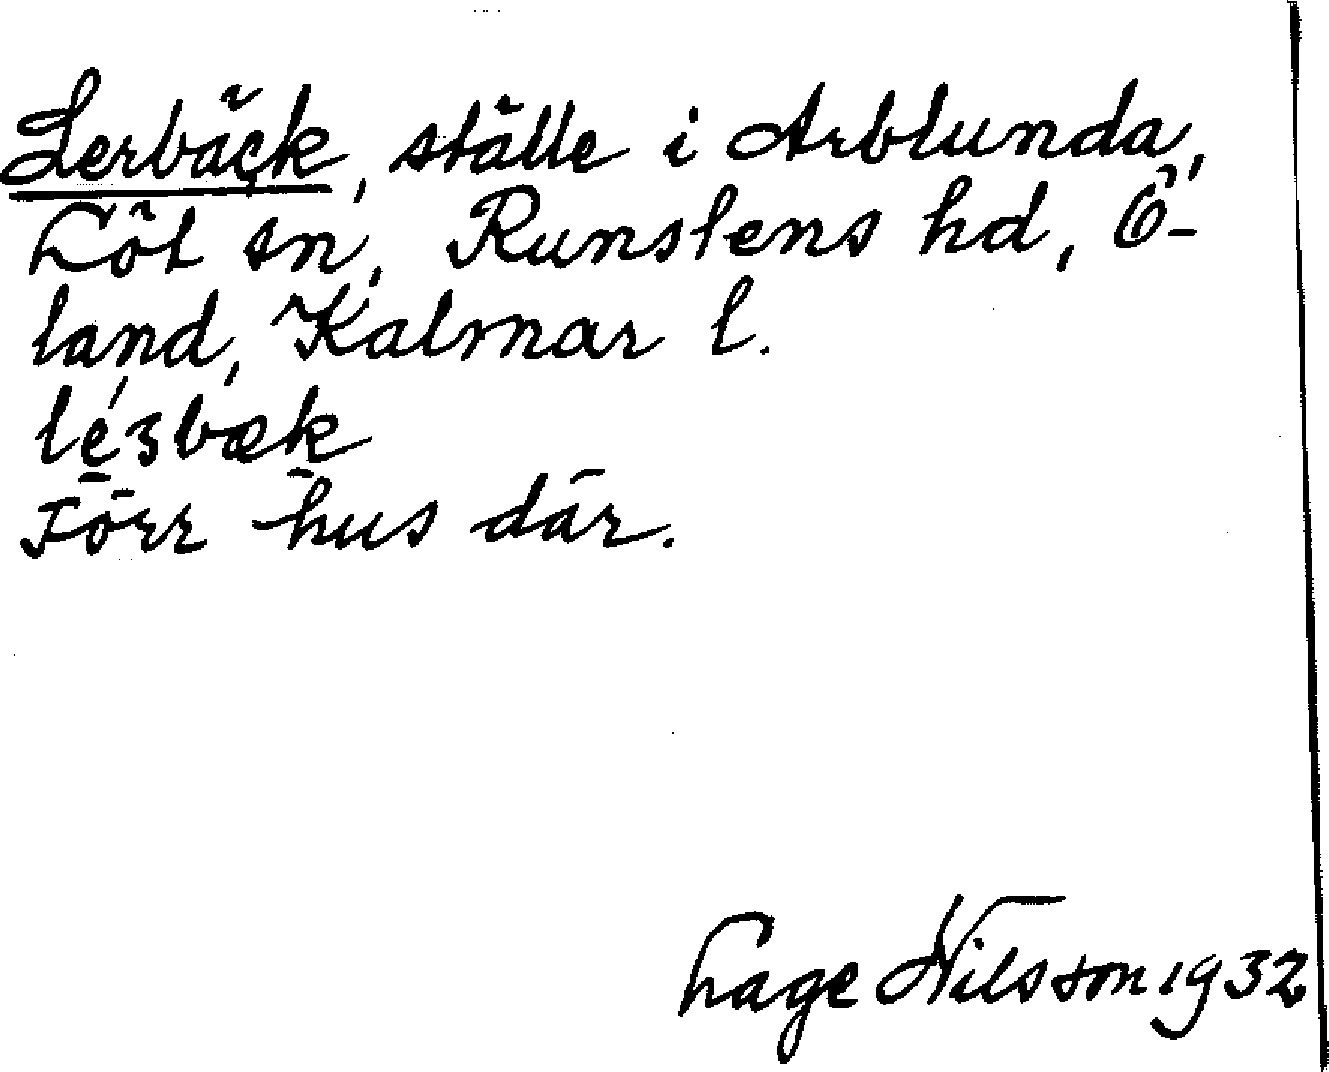 Lerbäck, ställe i Arblunda,
Löt sn, Runstens hd, Ö-
land, Kalmar l.
léʒbæk
Förr hus där.
Lage Nilsson 1932